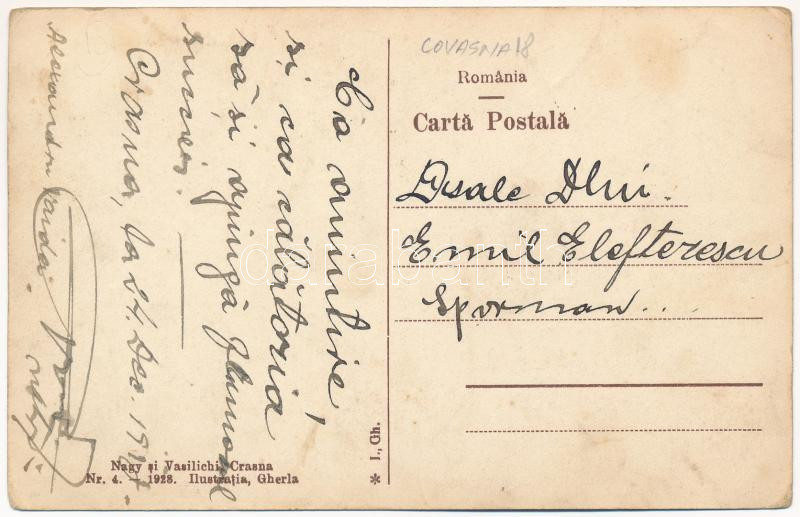 COVASNA 18
România
Cartă Postală
Dsale Dlui
Emil Elefterescu
Sporman..
Ca amintire,
și ca călătoria
să și ajungă
succes.
Crasna, la 24. Dec.
Alexandru
* I., Gh.
Nagy și Vasilichi, Crasna
Nr. 4. 1928. Ilustrația, Gherla
darabanth